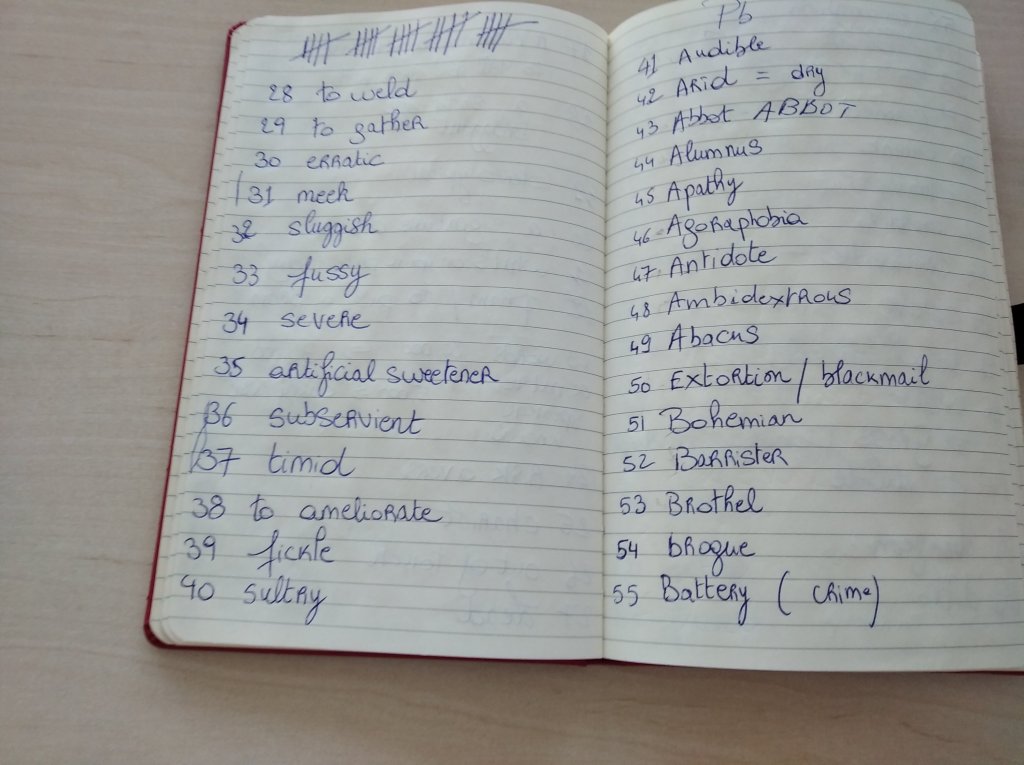 28 to weld
29 to gather
30 erratic
31 meek
32 sluggish
33 fussy
34 severe
35 artificial sweetener
36 subservient
37 timid
38 to ameliorate
39 fickle
40 sultry
Pb
41 Audible
42 Arid = dry
43 Abbot ABBOT
44 Alumnus
45 Apathy
46 Agoraphobia
47 Antidote
48 Ambidextrous
49 Abacus
50 Extortion / blackmail
51 Bohemian
52 Barrister
53 Brothel
54 brogue
55 Battery ( crime)